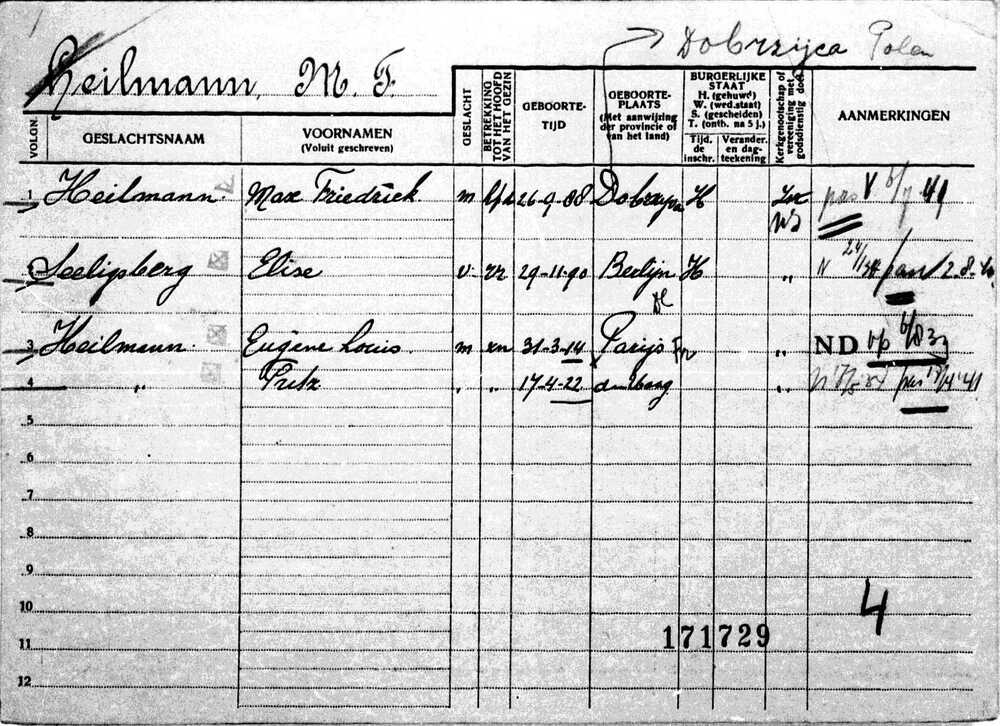 Dobrzijca Polen
Heilmann, M. F.
VOLGN.
GESLACHTSNAAM
VOORNAMEN
(Voluit geschreven)
GESLACHT
BETREKKING TOT HET HOOFD VAN HET GEZIN
GEBOORTE-
TIJD
GEBOORTE-
PLAATS
(Met aanwijzing
der provincie of
van het land)
BURGERLIJKE
STAAT
H. (gehuwd)
W. (wed.staat)
S. (gescheiden)
T. (ontb. na 5 j.)
Tijd.
de
inschr.
Verander.
en dag-
teekening
Kerkgenootschap of
vereeniging met
godsdienstig doel
AANMERKINGEN
1 Heilmann Max Friedrich m 26-9-88 H pas 41
2 Seeligsberg Elise v. 29-11-90 Berlijn H „ N pas 2-8-
3 Heilmann Eugène Louis m zn 31-3-14 Parijs Fr „ ND
4 „ Fritz „ „ 17-4-22 „ pas 41
5
6
7
8
9
10
4
11
171729
12